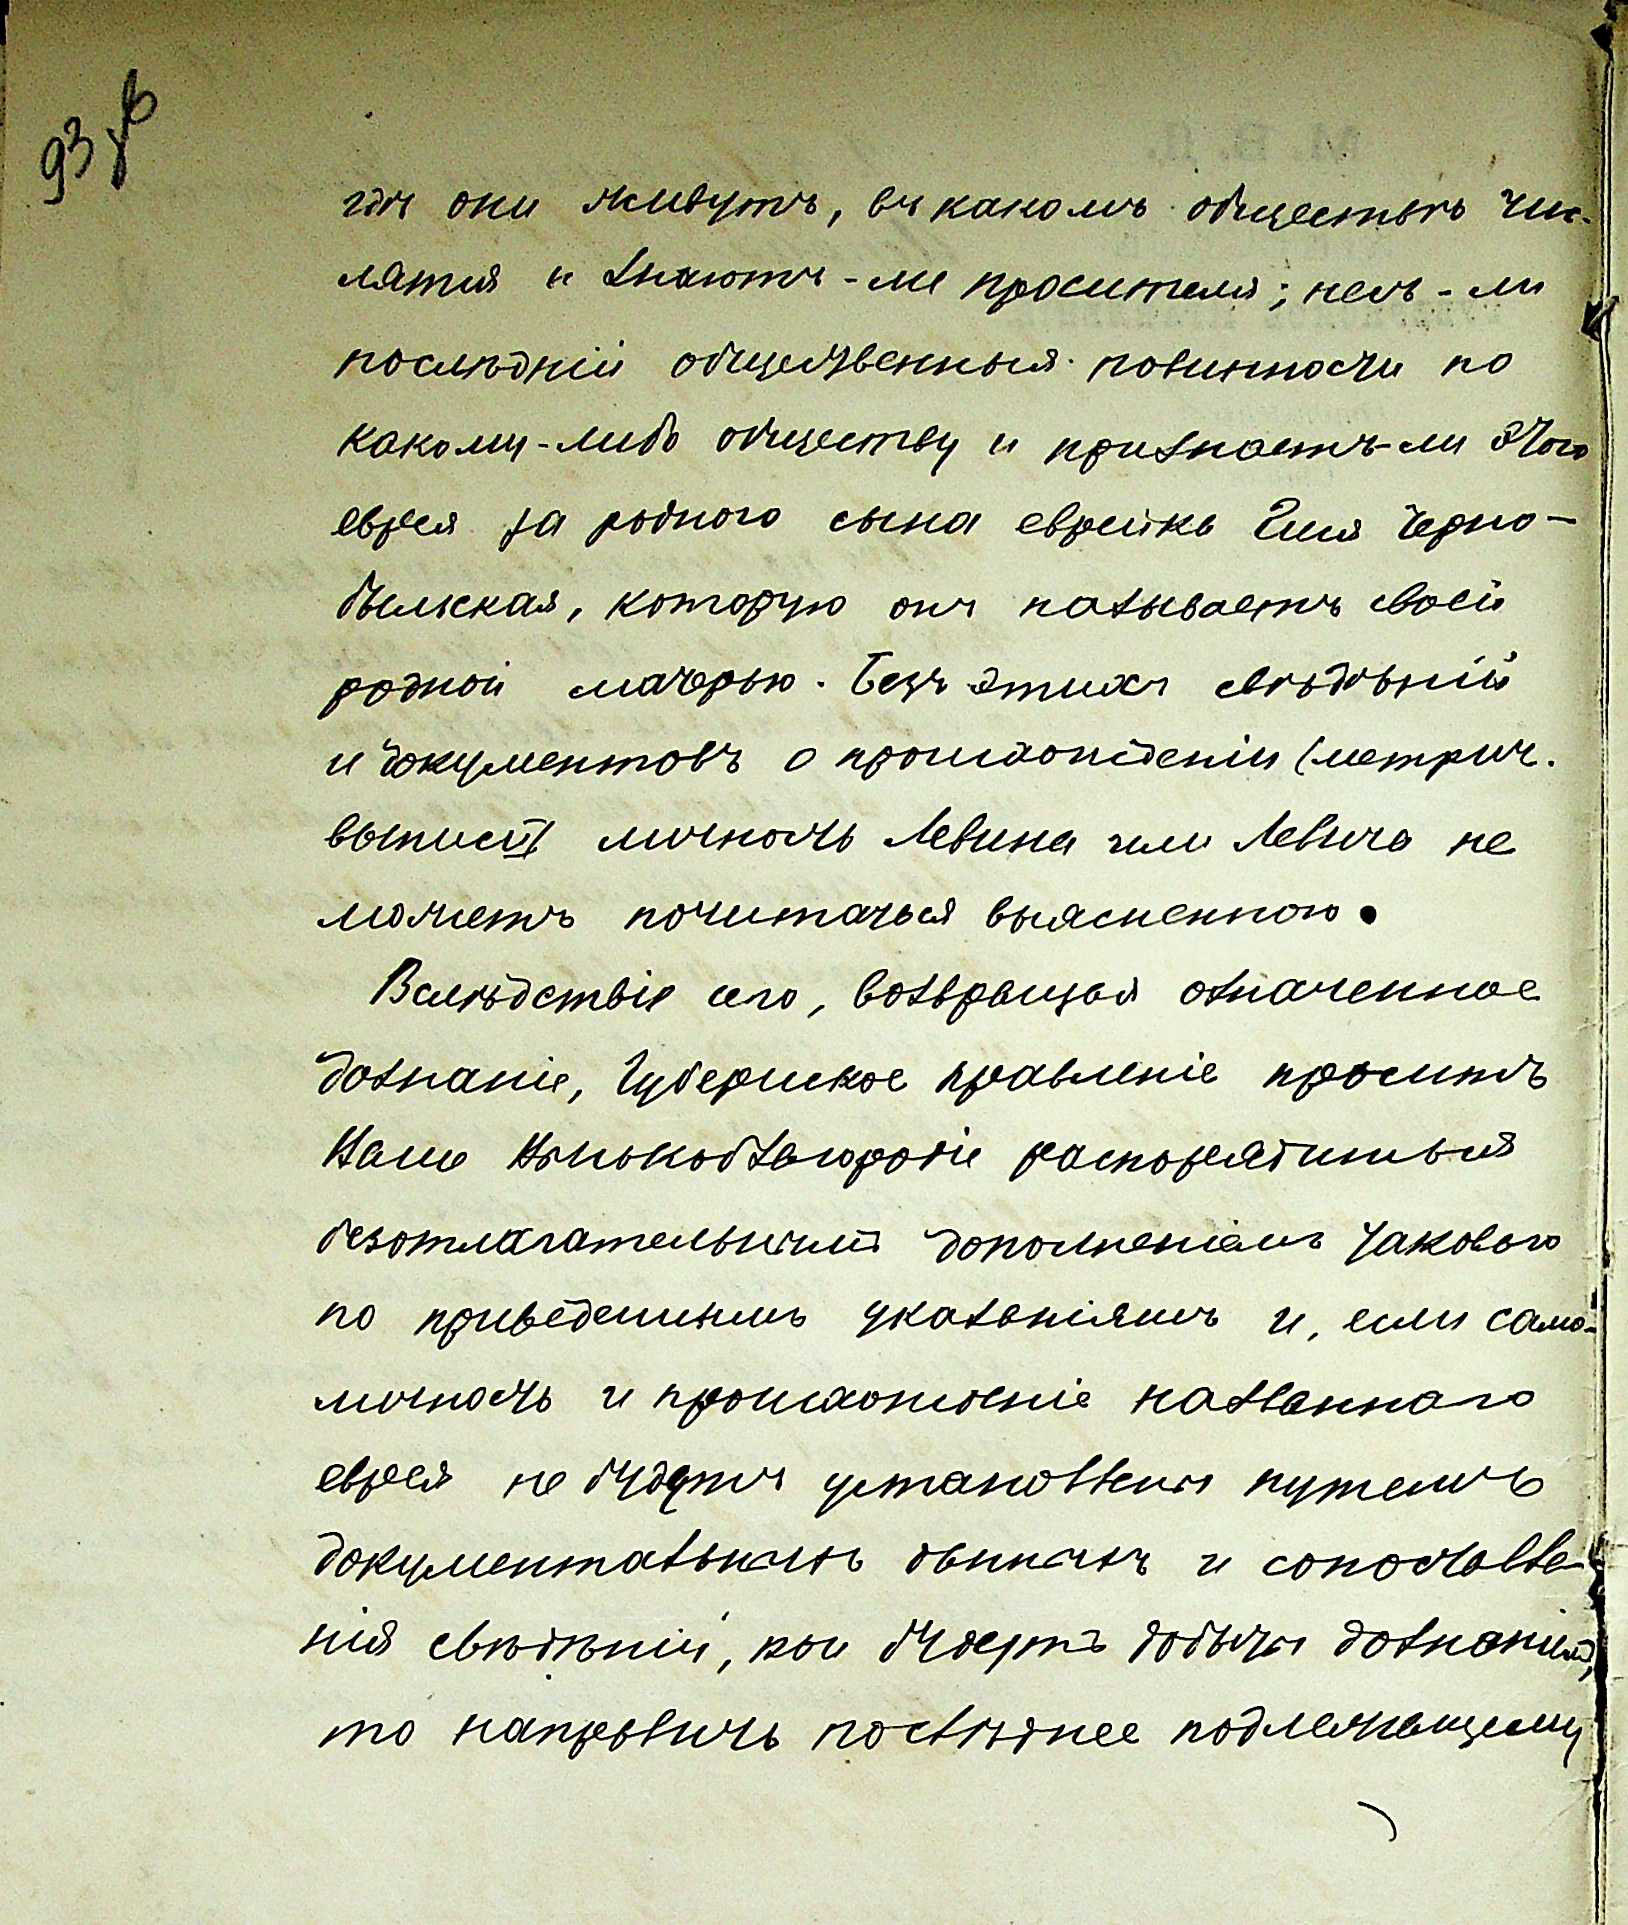 93 об
гдѣ они живутъ, въ какомъ обществѣ чис-
лятся и знаютъ-ли просителя; несъ-ли
послѣдній общественныя повинности по
какому-либо обществу и признаетъ-ли этого
еврея за родного сына еврейка Эшя Черно-
быльская, которую онъ называетъ своей
родной матерью. Безъ этихъ свѣдѣній
и документовъ о происхожденіи (метрич.
выписи) личность Левина или Левита не
можетъ почитаться выясненною.
Вслѣдствіе сего, возвращая означенное
дознаніе, Губернское Правленіе проситъ
Ваше Высокоблагородіе распорядиться
безотлагательнымъ дополненіемъ такового
по приведеннымъ указаніямъ и, если само-
личность и происхожденіе названнаго
еврея не будутъ установлены путемъ
документальныхъ данныхъ и сопоставле-
нія свѣдѣній, кои будутъ добыты дознаніемъ,
то направить послѣднее подлежащему